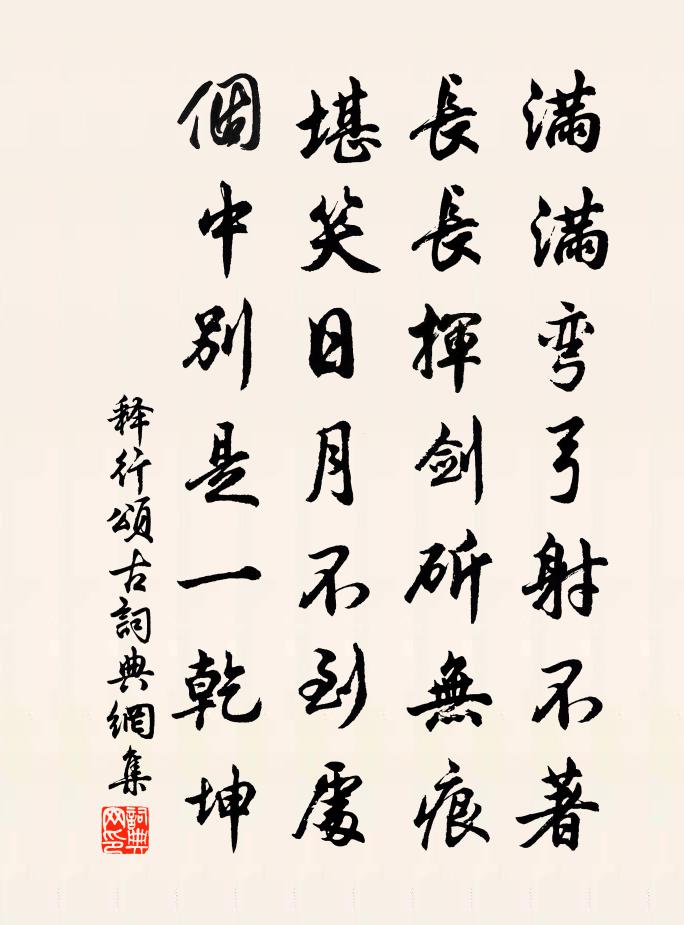 滿滿弯弓射不著
長長揮剑斫無痕
堪笑日月不到處
個中別是一乾坤
释行頌古詞典網集
詞典网印